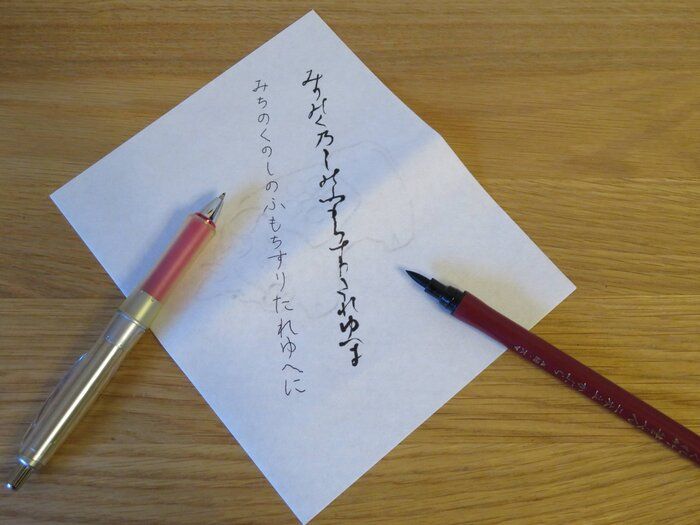 みちのく乃しのふもちすりたれゆへに
みちのくのしのふもちすりたれゆへに